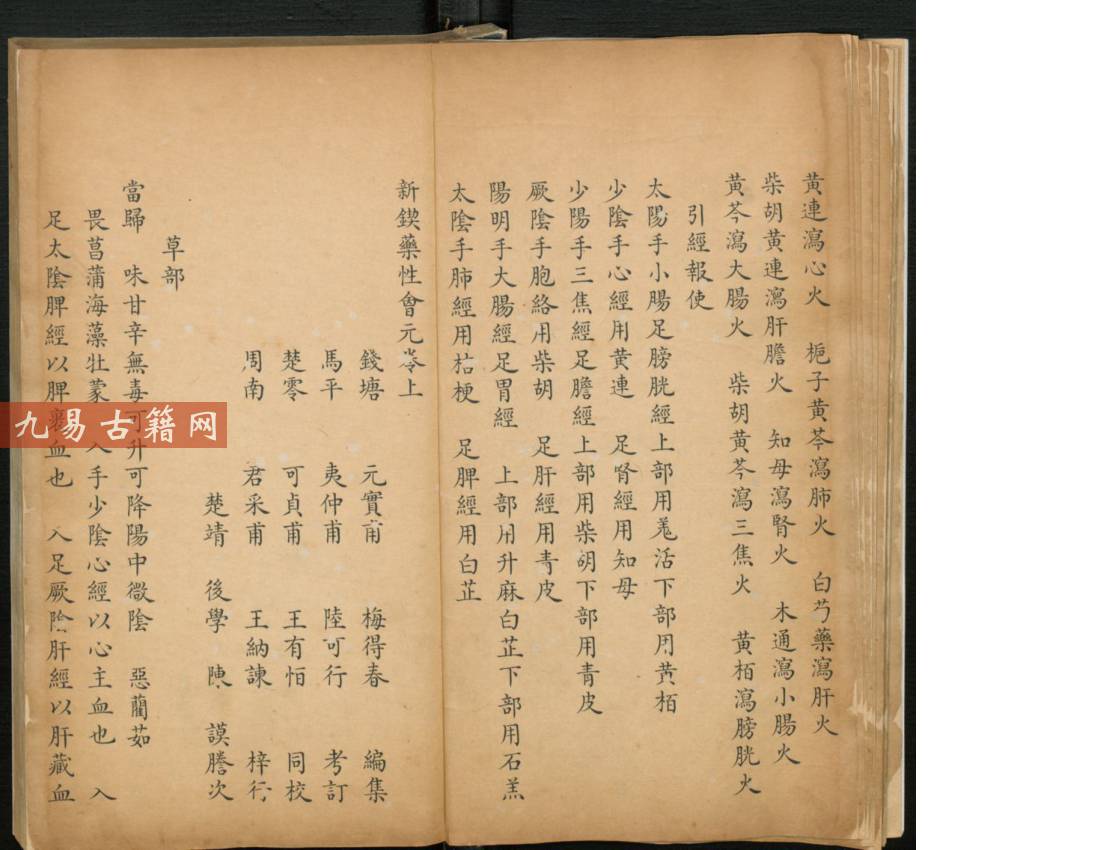 黄連瀉心火　梔子黄芩瀉肺火　白芍藥瀉肝火
柴胡黄連瀉肝膽火　知母瀉腎火　木通瀉小腸火
黄芩瀉大腸火　柴胡黄芩瀉三焦火　黄栢瀉膀胱火
引經報使
太陽手小腸足膀胱經上部用羗活下部用黄栢
少陰手心經用黄連　足腎經用知母
少陽手三焦經足膽經上部用柴胡下部用青皮
厥陰手胞絡用柴胡　足肝經用青皮
陽明手大腸經足胃經　上部用升麻白芷下部用石羔
太陰手肺經用桔梗　足脾經用白芷
新鍥藥性會元卷上
錢塘　元實甫　梅得春　編集
馬平　夷仲甫　陸可行　考訂
楚零　可貞甫　王有恒　同校
周南　君采甫　王納諫　梓行
楚靖　後學　陳　謨謄次
草部
當歸　味甘辛無毒可升可降陽中微陰　惡藺茹
畏菖蒲海藻牡蒙　入手少陰心經以心主血也　入
足太陰脾經以脾裹血也　入足厥陰肝經以肝藏血
九易古籍网